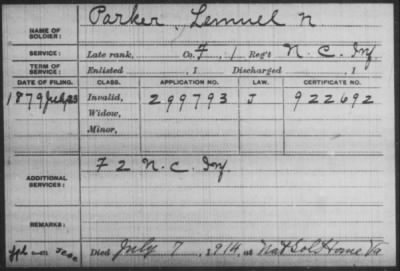 Parker, Lemuel N
NAME OF SOLDIER:
SERVICE: Late rank, Co. F, 1 Reg't N. C. Inf
TERM OF SERVICE: Enlisted , 1 Discharged , 1
DATE OF FILING. CLASS. APPLICATION NO. LAW. CERTIFICATE NO.
1879 July 23 Invalid, 299793 J 922692
Widow,
Minor,
ADDITIONAL SERVICES: F 2 N. C. Inf
REMARKS:
Died July 7, 1914, at Nat Sol Home Va